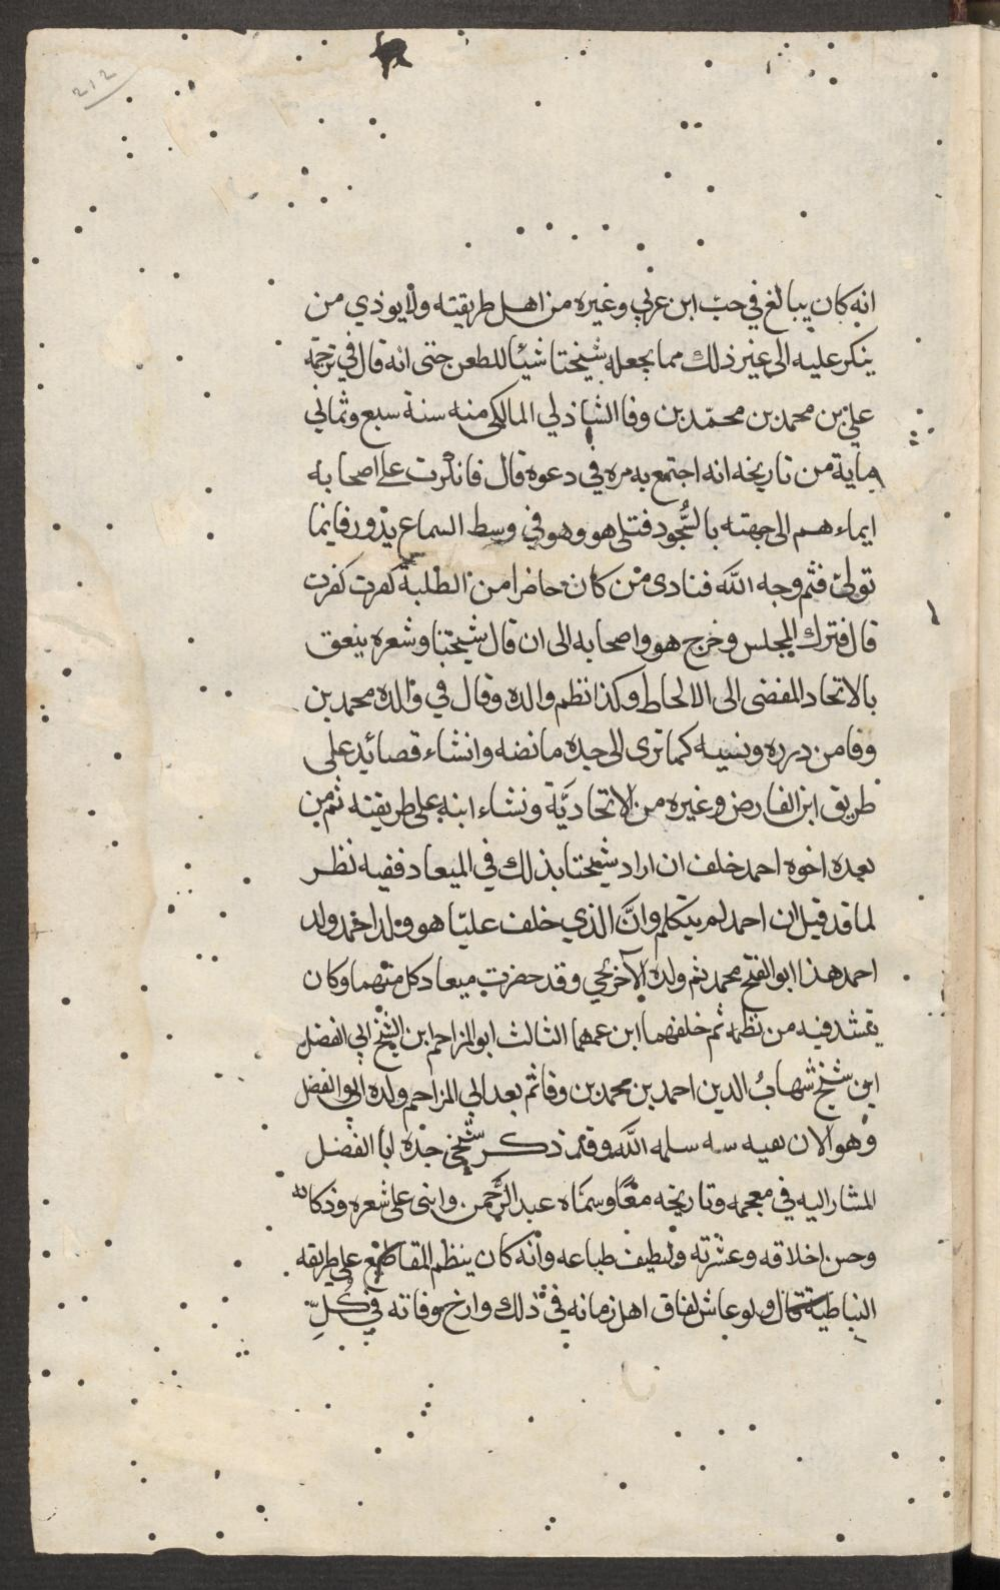 ٢١٢
انه كان يبالغ في حب ابن عربي وغيره من اهل طريقته ولا يوذي من
ينكر عليه الى غير ذلك مما يجعله شيخنا شيئا للطعن حتى انه قال في ترجمة
علي بن محمد بن محمد بن وفا الشاذلي المالكي منه سنة سبع وثماني
ماية من تاريخه انه اجتمع به مره في دعوة قال فانكرت على اصحابه
ايماءهم الى جهته بالسجود فتلى هو وهو في وسط السماع يدور فاينما
تولى فثم وجه الله فنادى من كان حاضرا من الطلبة كفرت كفرت
قال فترك المجلس وخرج هو واصحابه الى ان قال شيخنا وشعره ينعق
بالاتحاد المفضى الى الالحاط وكذا نظم والده وقال في والده محمد بن
وفا من درره ونسبه كما ترى الى جده ما نصه وانشاء قصائيد على
طريق ابن الفارض وغيره من الاتحاديَّة ونشاء ابنه على طريقته ثم من
بعده اخوه احمد خلف ان اراد شيخنا بذلك في الميعاد ففيه نظر
لما قد قيل ان احمد لم يتكلم وانَّ الذي خلف عليّا هو ولد احمد ولد
احمد هذا ابو الفتح محمد ثم ولده الآخر يحيى وقد حضرت ميعاد كل منهما وكان
ينشد فيه من نظمه ثم خلفهما ابن عمهما الثالث ابو المراحم ابن الشيخ ابي الفضل
ابن شيخ شهابُ الدين احمد بن محمد بن وفا ثم بعد ابي المراحم ولده ابو الفضل
وهو الان سلمه الله وقد ذكر شيخي جده ابا الفضل
المشار اليه في معجمه وتاريخه معًا وسمّاه عبد الرَّحمن واثنى على شعره وذكائه
وحسن اخلاقه وعشرته ولطيف طباعه وانه كان ينظم المقاطيع على طريقه
النباطية قال ولو عاش لفاق اهل زمانه في ذلك وارخ وفاته في كُلِّ